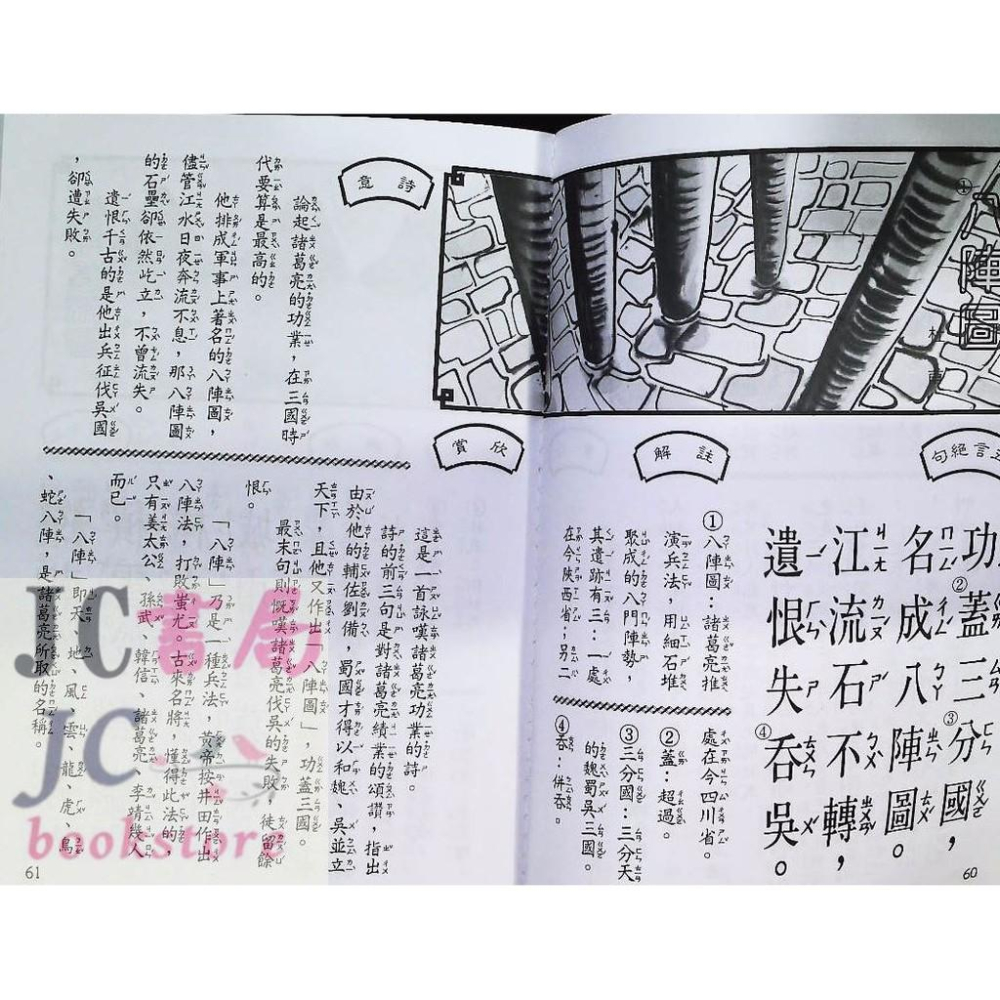 八陣圖
杜甫
五言絕句
功蓋②三分③國，
名成八陣圖。
江流石不轉，
遺恨失吞④吳。
註解
①八陣圖：諸葛亮推
演兵法，用細石堆
聚成的八門陣勢，
其遺跡有三：一處
在今陝西省；另二
處在今四川省。
②蓋：超過。
③三分國：三分天
的魏蜀吳三國。
④吞：併吞。
60
詩意
論起諸葛亮的功業，在三國時
代要算是最高的。
他排成軍事上著名的八陣圖，
儘管江水日夜奔流不息，那八陣圖
的石壘卻依然屹立，不曾流失。
遺恨千古的是他出兵征伐吳國
，卻遭失敗。
欣賞
這是一首詠嘆諸葛亮功業的詩。
詩的前三句是對諸葛亮績業的頌讚，指出
由於他的輔佐劉備，蜀國才得以和魏、吳並立
天下，且他又作出「八陣圖」，功蓋三國。
最末句則慨嘆諸葛亮伐吳的失敗，徒留餘
恨。
「八陣」乃是一種兵法，黃帝按井田作出
八陣法，打敗蚩尤。古來名將，懂得此法的，
只有姜太公、孫武、韓信、諸葛亮、李靖幾人
而已。
「八陣」即天、地、風、雲、龍、虎、鳥
、蛇八陣，是諸葛亮所取的名稱。
61
JC書局
JC
bookstore